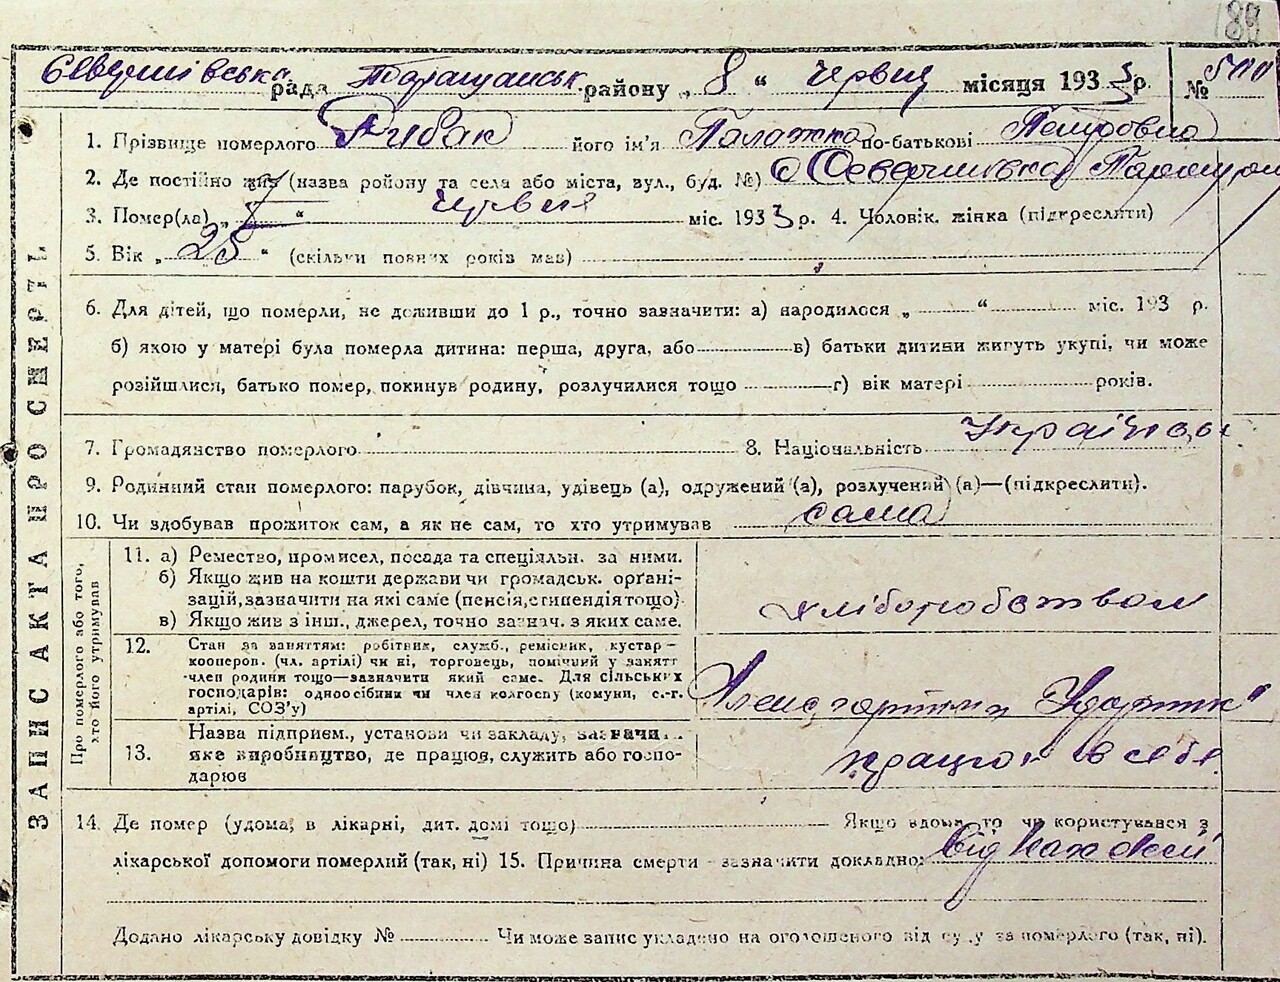 188
рада Таращанськ. району „ 8 “ червня місяця 1933 р. №
1. Прізвище померлого Рибак його ім'я Палажка по-батькові Петровна
2. Де постійно жив (назва ройону та села або міста, вул., буд. №)
3. Помер(ла) „ “ червня міс. 1933 р. 4. Чоловік. жінка (підкреслити)
5. Вік „ 25 “ (скільки повних років мав)
6. Для дітей, що померли, не доживши до 1 р., точно зазначити: а) народилося „ “ міс. 193 р.
б) якою у матері була померла дитина: перша, друга, або в) батьки дитини живуть укупі, чи може
розійшлися, батько помер, покинув родину, розлучилися тощо г) вік матері років.
7. Громадянство померлого 8. Національність
9. Родинний стан померлого: парубок, дівчина, удівець (а), одружений (а), розлучений (а)—(підкреслити).
10. Чи здобував прожиток сам, а як не сам, то хто утримував сама
ЗАПИС АКТА ПРО СМЕРТЬ
Про померлого або того, хто його утримував
11. а) Ремество, промисел, посада та спеціяльн. за ними.
б) Якщо жив на кошти держави чи громадськ. орґані-
зацій, зазначити на які саме (пенсія, стипендія тощо).
в) Якщо жив з інш., джерел, точно зазнач. з яких саме.
хліборобством
12. Стан за заняттям: робітник, служб., ремісник, кустар—
кооперов. (чл. артілі) чи ні, торговець, помічний у занятт
член родини тощо—зазначити який саме. Для сільських
господарів: одноосібник чи член колгоспу (комуни, с.-г.
артілі, СОЗ'у)
13. Назва підприєм., установи чи закладу, зазначити
яке виробництво, де працює, служить або госпо-
дарює
14. Де помер (удома, в лікарні, дит. домі тощо) Якщо вдома, то чи користувався з
лікарської допомоги померлий (так, ні) 15. Причина смерти зазначити докладно: від
Додано лікарську довідку № Чи може запис укладено на оголошеного від суду за померлого (так, ні).